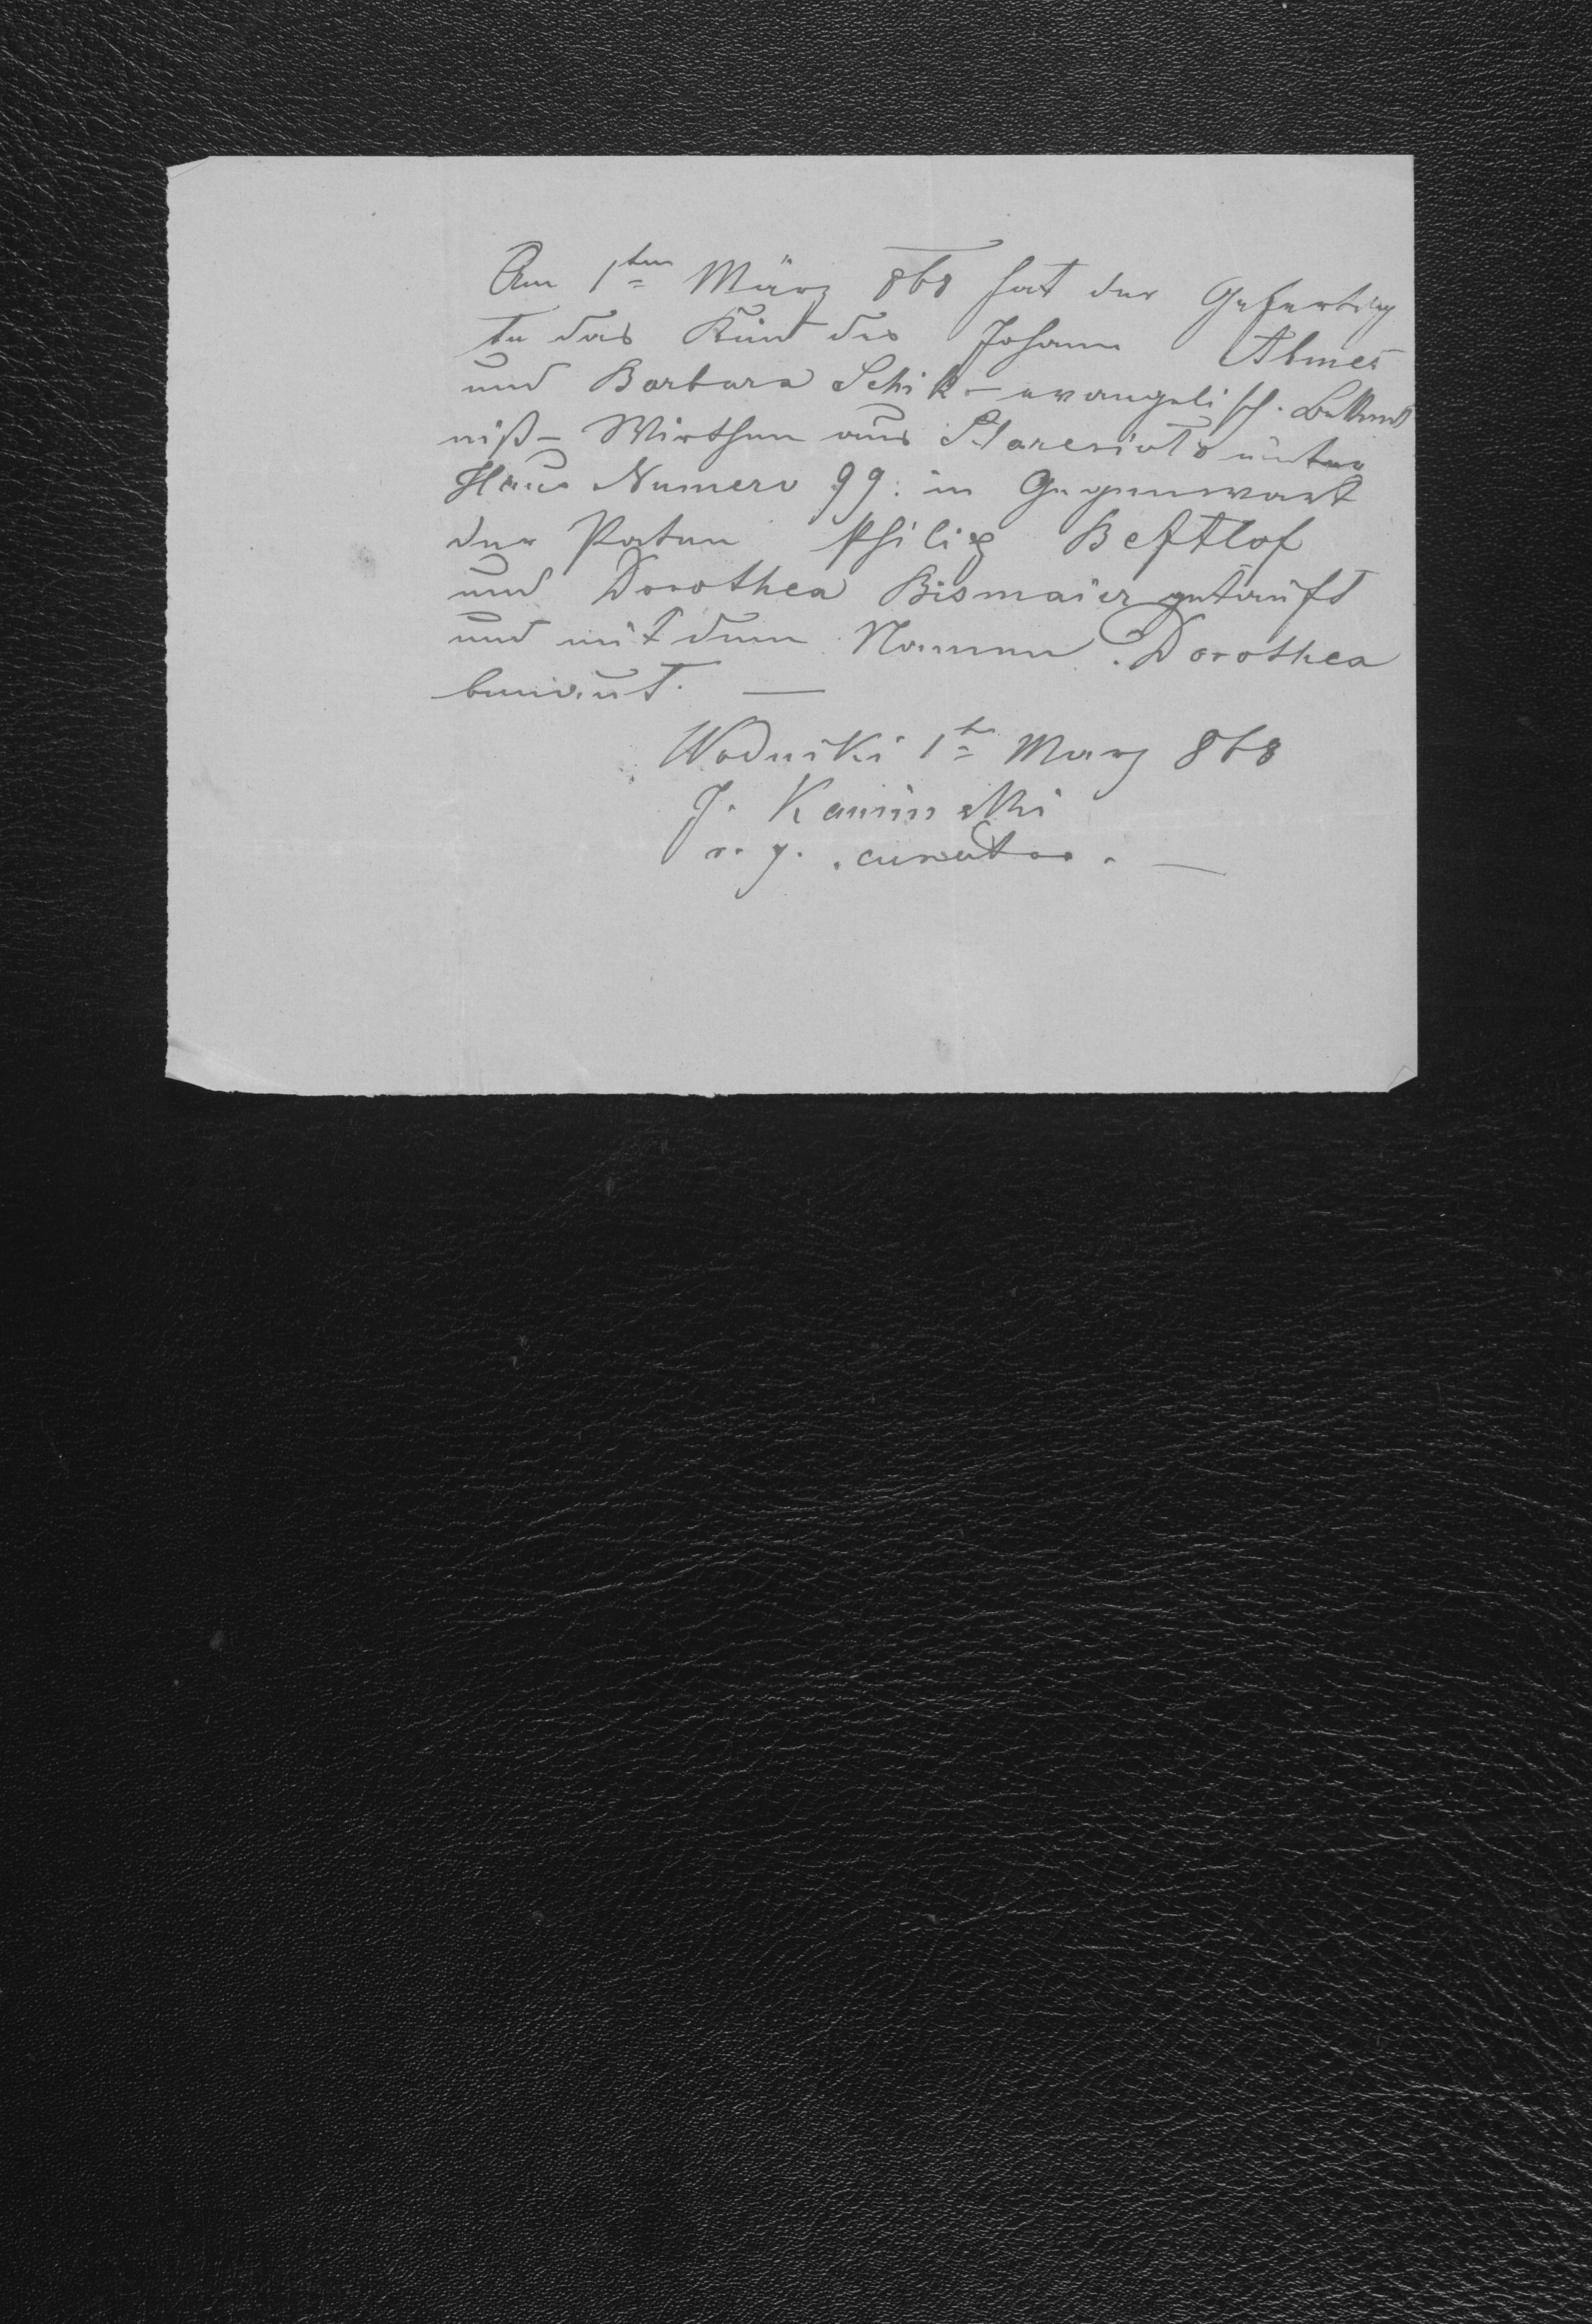 Am 1ten März 868 hat der Gefertig
te das Kind des Johann Abmes
und Barbara Schik – evangelisch. Bekennt
niß – Wirthen aus unter
Haus Numero 99: in Gegenwart
der Paten Philip
und Dorothea Bismaier getauft
und mit dem Namen Dorothea
benant. —
Wodniki 1te Marz 868
J. Kaminski
r. g. curator. —